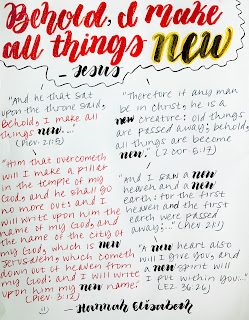 Behold, I make
all things new
- Jesus
"And he that sat
upon the throne said,
Behold, I make all
things new..."
(Rev. 21:5)
"Him that overcometh
will I make a pillar
in the temple of my
God, and he shall go
no more out: and I
will write upon him the
name of my God, and
the name of the city of
my God, which is new
Jerusalem, which cometh
down out of heaven from
my God: and I will write
upon him my new name."
(Rev. 3:12)
"Therefore if any man
be in Christ, he is a
new creature: old things
are passed away; behold,
all things are become
new." (2 Cor 5:17)
"And I saw a new
heaven and a new
earth: for the first
heaven and the first
earth were passed
away;..." (Rev 21:1)
"A new heart also
will I give you, and
a new spirit will
I put within you..."
(EZ. 36:26)
- Hannah Elizabeth